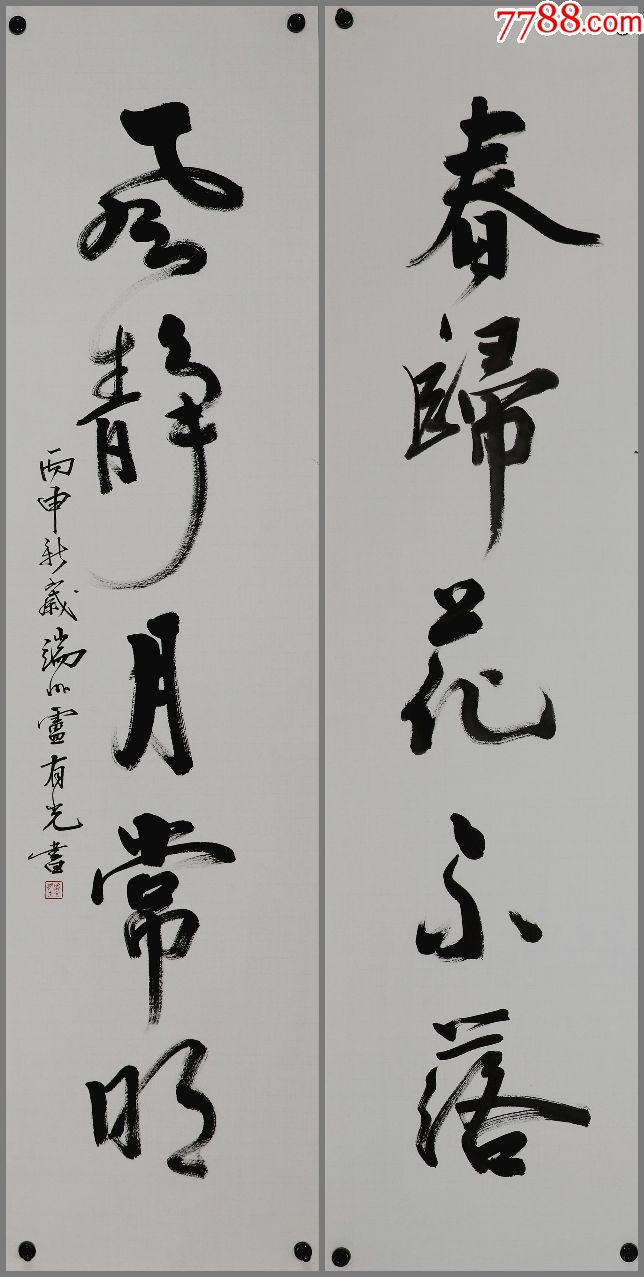 7788.com
春歸花不落
风静月常明
丙申秋歲端州盧有光書